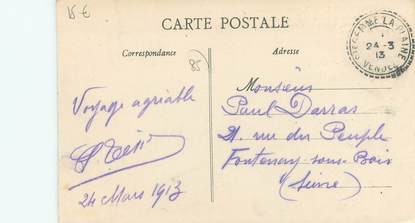 15 €
CARTE POSTALE
Correspondance
Adresse
85
STE GEMME LA PLAINE
24-3
13
VENDÉE
Voyage agréable
24 Mars 1913
Monsieur
Paul Darras
rue du Peuple
Fontenay sous Bois
(Seine)